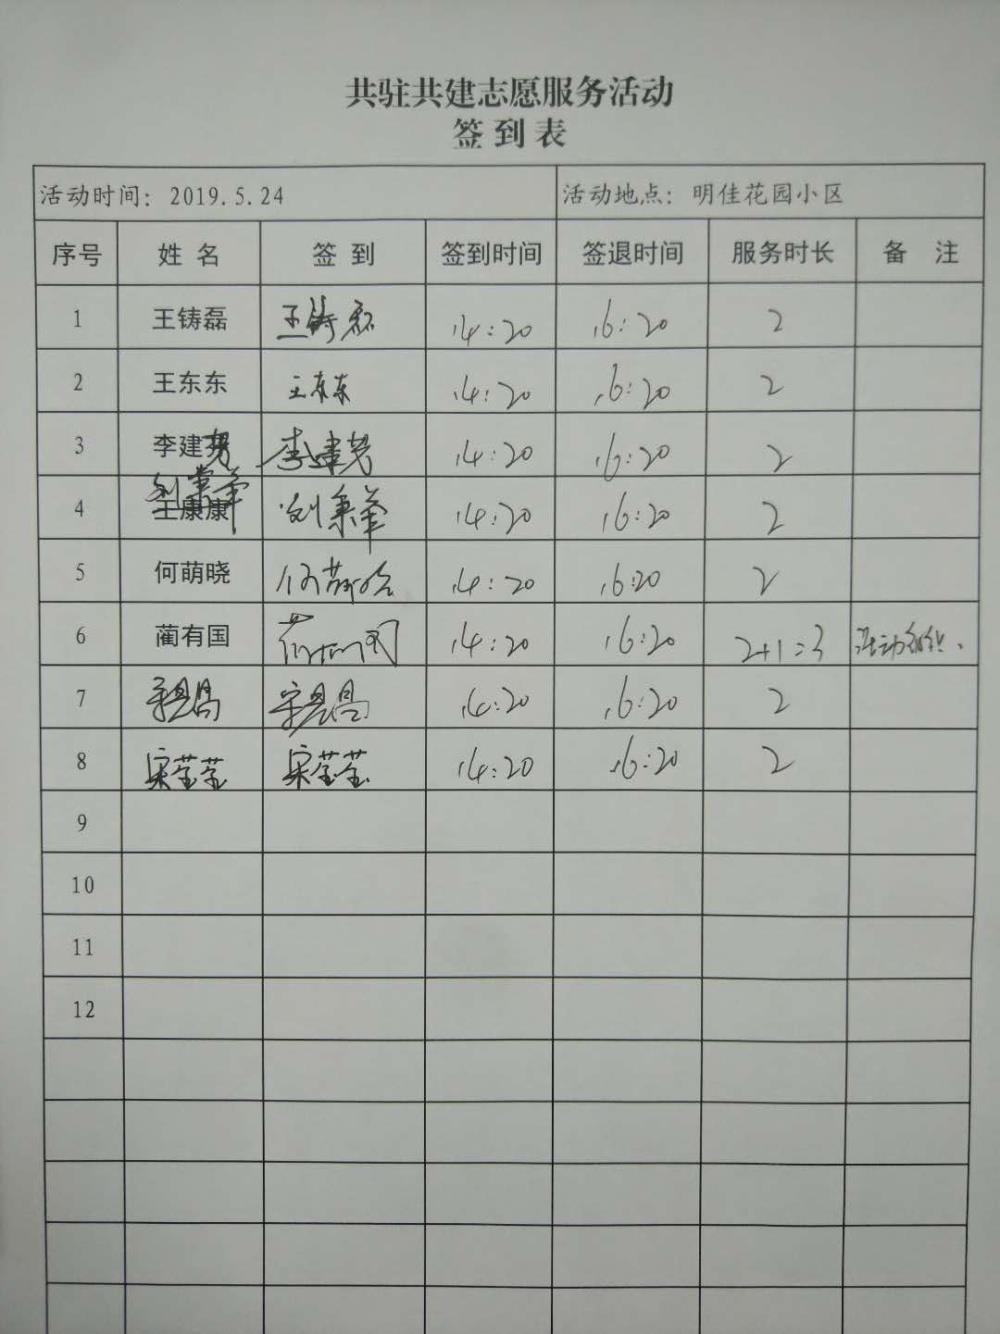 共驻共建志愿服务活动
签到表
活动时间：2019.5.24 活动地点：明佳花园小区
序号 姓名 签到 签到时间 签退时间 服务时长 备注
1 王铸磊 王铸磊 14:20 16:20 2
2 王东东 王东东 14:20 16:20 2
3 李建 李建 14:20 16:20 2
4 王康康 刘秉峰 刘秉峰 14:20 16:20 2
5 何萌晓 何萌晓 14:20 16:20 2
6 蔺有国 蔺有国 14:20 16:20 2+1=3 活动组织、
7 14:20 16:20 2
8 宋莹莹 宋莹莹 14:20 16:20 2
9
10
11
12